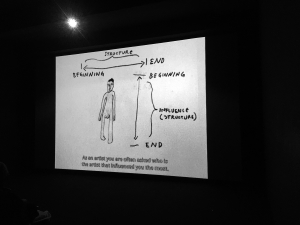 STRUCTURE
END
BEGINNING
BEGINNING
INFLUENCE
(STRUCTURE)
END
As an artist you are often asked who is
the artist that influenced you the most,